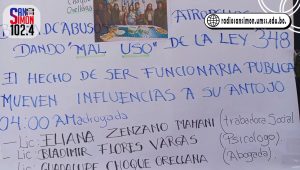 SAN SIMON
102.4
radiosansimon.umss.edu.bo.
DE ABUS
DANDO "MAL USO" DE LA LEY 348
EL HECHO DE SER FUNCIONARIA PUBLICA
MUEVEN INFLUENCIAS A SU ANTOJO
04:00 AM Madrugada
- Lic. ELIANA ZENZANO MAMANI (trabadora Social
- Lic. BLADIMIR FLORES VARGAS (Psicologo).
- Lic. GUADALUPE CHOQUE ORELLANA (Abogada).